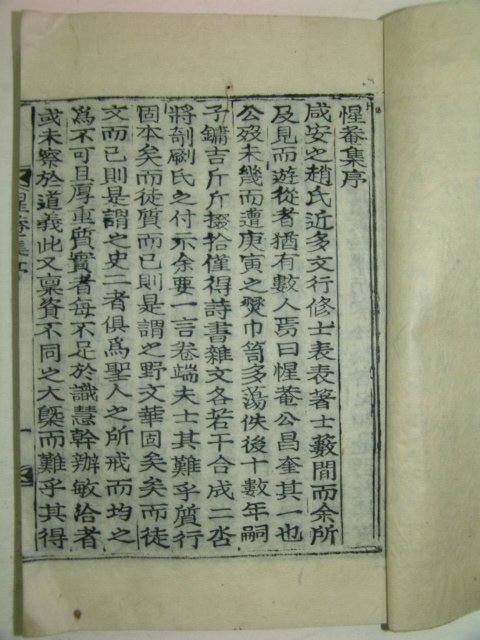 惺菴集序
咸安之趙氏近多文行修士表表著士藪間而余所
及見而遊從者猶有數人焉曰惺菴公昌奎其一也
公歿未幾而遭庚寅之燹巾笥多蕩佚後十數年嗣
子鏞吉斤斤掇拾僅得詩書雜文各若干合成二沓
將剞劂氏之付示余要一言卷端夫士其難乎質行
固本矣而徒質而已則是謂之野文華固矣矣而徒
文而已則是謂之史二者俱爲聖人之所戒而均之
爲不可且厚重質實者每不足於識慧幹辦敏給者
或未察於道義此又稟資不同之大槩而難乎其得
惺菴集序
一